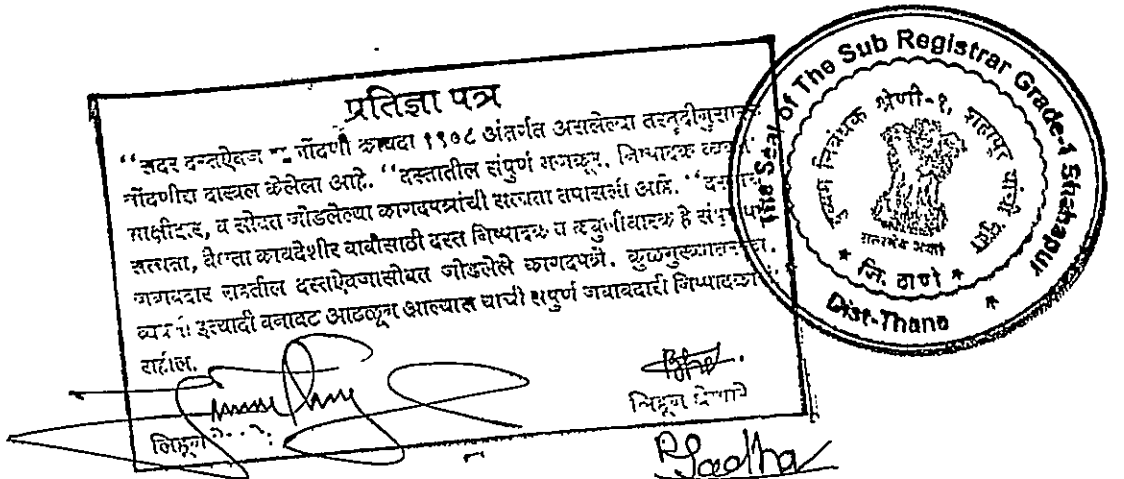 प्रतिज्ञा पत्र
“सदर दस्तऐवज नोंदणी कायदा १९०८ अंतर्गत असलेल्या तरतूदीनुसार
नोंदणीस दाखल केलेला आहे. “दस्तातील संपुर्ण मजकूर, निष्पादक व्यक्ती,
साक्षीदार, व सोबत जोडलेल्या कागदपत्रांची सत्यता तपासली आहे. “दस्ताची
सत्यता, वैधता कायदेशीर बाबीसाठी दस्त निष्पादक व कबुलीधारक हे संपुर्णपणे
जबाबदार राहतील दस्तऐवजासोबत जोडलेले कागदपत्रे, कुळमुखत्यारपत्र,
व्यक्ती इत्यादी बनावट आढळून आल्यास याची संपुर्ण जबाबदारी निष्पादकाची
राहील.
लिहून
लिहून घेणारे
The Seal of The Sub Registrar Grade-1 Shahapur
Dist-Thane
दुय्यम निबंधक श्रेणी-१, शहापूर यांची मुद्रा
सत्यमेव जयते
* जि. ठाणे *